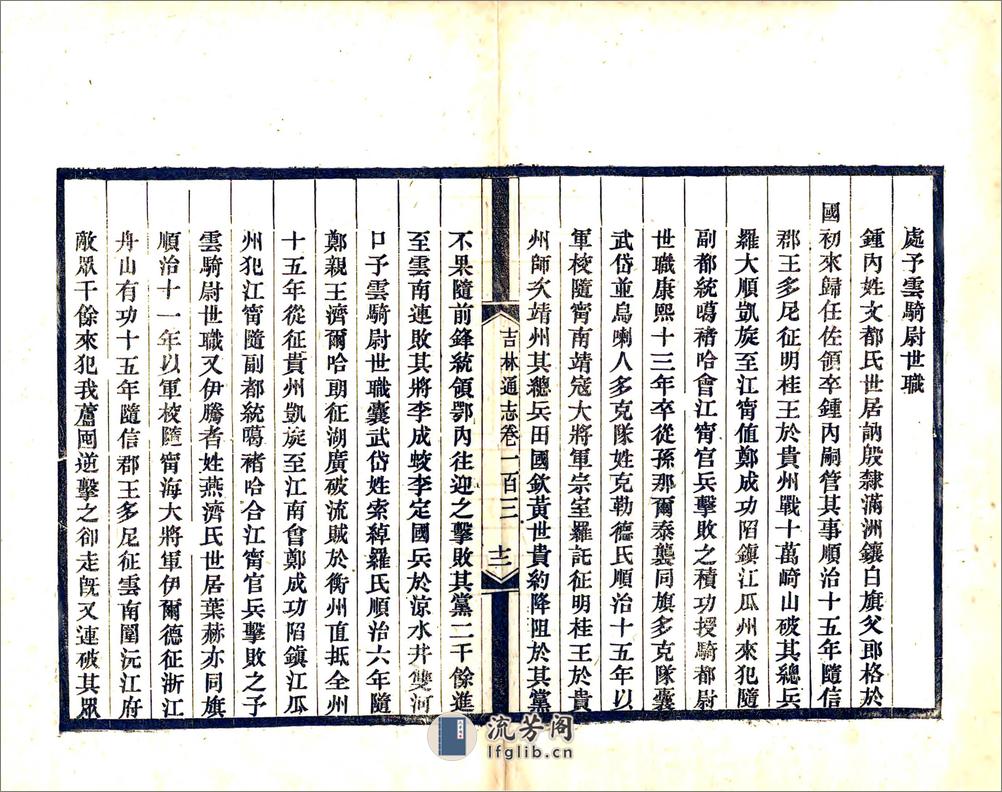 處予雲騎尉世職
鍾內姓文都氏世居訥殷隸滿洲鑲白旗父郎格於
國初來歸任佐領卒鍾內嗣管其事順治十五年隨信
郡王多尼征明桂王於貴州戰十萬崎山破其總兵
羅大順凱旋至江甯值鄭成功陷鎮江瓜州來犯隨
副都統噶褚哈會江甯官兵擊敗之積功授騎都尉
世職康熙十三年卒從孫那爾泰襲同旗多克隊囊
武岱並烏喇人多克隊姓克勒德氏順治十五年以
軍校隨甯南靖寇大將軍宗室羅託征明桂王於貴
州師次靖州其總兵田國欽黃世貴約降阻於其黨
吉林通志卷一百三
十二
不果隨前鋒統領鄂內往迎之擊敗其黨二千餘進
至雲南連敗其將李成蛟李定國兵於涼水井雙河
口予雲騎尉世職囊武岱姓索綽羅氏順治六年隨
鄭親王濟爾哈朗征湖廣破流賊於衡州直抵全州
十五年從征貴州凱旋至江南會鄭成功陷鎮江瓜
州犯江甯隨副都統噶褚哈合江甯官兵擊敗之予
雲騎尉世職又伊騰者姓燕濟氏世居葉赫亦同旗
順治十一年以軍校隨甯海大將軍伊爾德征浙江
舟山有功十五年隨信郡王多尼征雲南圍沅江府
敵眾千餘來犯我蘆囤逆擊之卻走旣又連破其眾
流芳阁
lfglib.cn